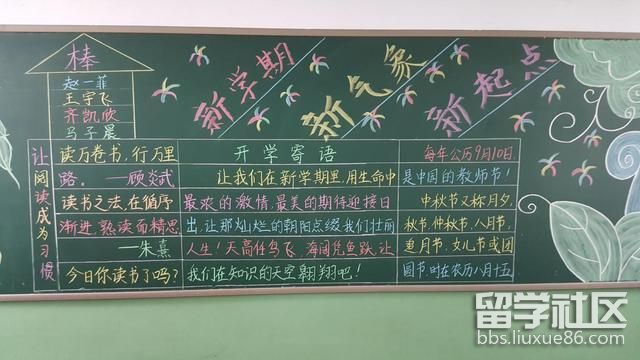 棒
赵一菲
王宇飞
齐凯欣
马子晨
新学期
新气象
新起点
让阅读成为习惯
读万卷书,行万里
路。 —顾炎武
读书之法,在循序
渐进,熟读而精思
—朱熹
今日你读书了吗?
开学寄语
让我们在新学期里,用生命中
最浓的激情,最美的期待迎接日
出,让那灿烂的朝阳点缀我们壮丽
人生!天高任鸟飞,海阔凭鱼跃,让
我们在知识的天空翱翔吧!
每年公历9月10日,
是中国的教师节!
中秋节又称月夕,
秋节,仲秋节,八月节,
追月节,女儿节或团
圆节,时在农历八月十五
留学社区
bbs.liuxue86.com